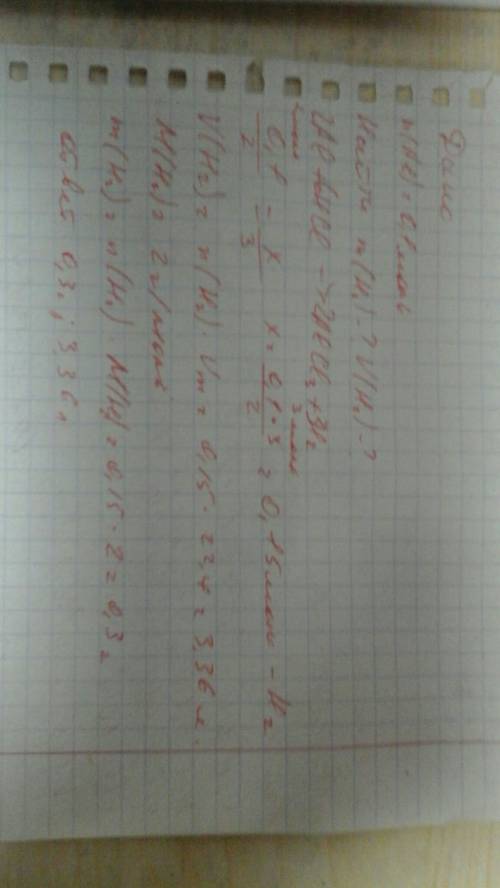 Дано
n(Al) = 0,1 моль
Найти m(H₂)-? V(H₂)-?
2Al + 6HCl -> 2AlCl₃ + 3H₂
2 моль 3 моль
0,1/2 = x/3 x = 0,1·3/2 = 0,15 моль - H₂
V(H₂) = n(H₂) · Vm = 0,15 · 22,4 = 3,36 л.
M(H₂) = 2 г/моль
m(H₂) = n(H₂) · M(H₂) = 0,15 · 2 = 0,3 г
Ответ 0,3г; 3,36 л